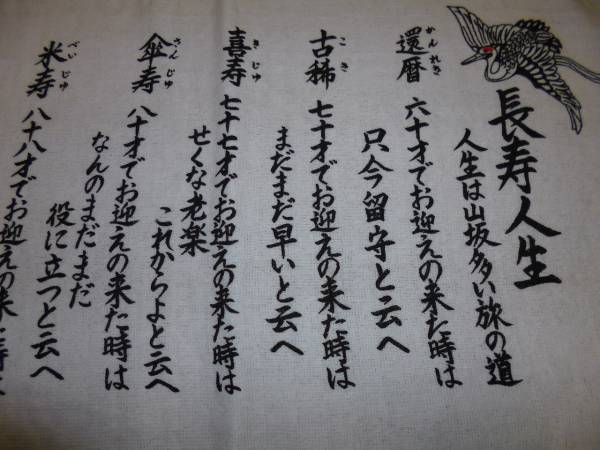 長寿人生
人生は山坂多い旅の道
かんれき
還暦 六十才でお迎えの来た時は
只今留守と云へ
こき
古稀 七十才でお迎えの来た時は
まだまだ早いと云へ
きじゅ
喜寿 七十七才でお迎えの来た時は
せくな老楽
これからよと云へ
さんじゅ
傘寿 八十才でお迎えの来た時は
なんのまだまだ
役に立つと云へ
べいじゅ
米寿 八十八才でお迎えの来た